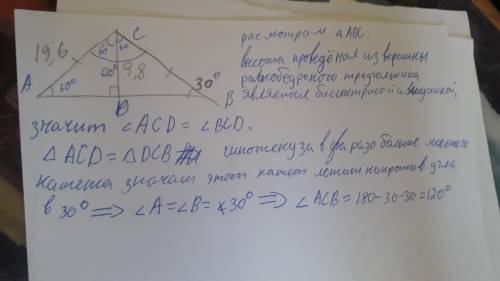 C
19,6
60 60
120°
9,8
A 30° 30° B
D
расмотрим △ABC.
высота проведёная из вершины
равнобедреного треугольника
является биссектрисой и медианой,
значит ∠ACD = ∠BCD.
△ACD = △DCB гипотенуза в два раза больше меньшего
катета значит этот катет лежит напротив угла
в 30° ⇒ ∠A=∠B= 30° ⇒ ∠ACB = 180-30-30=120°